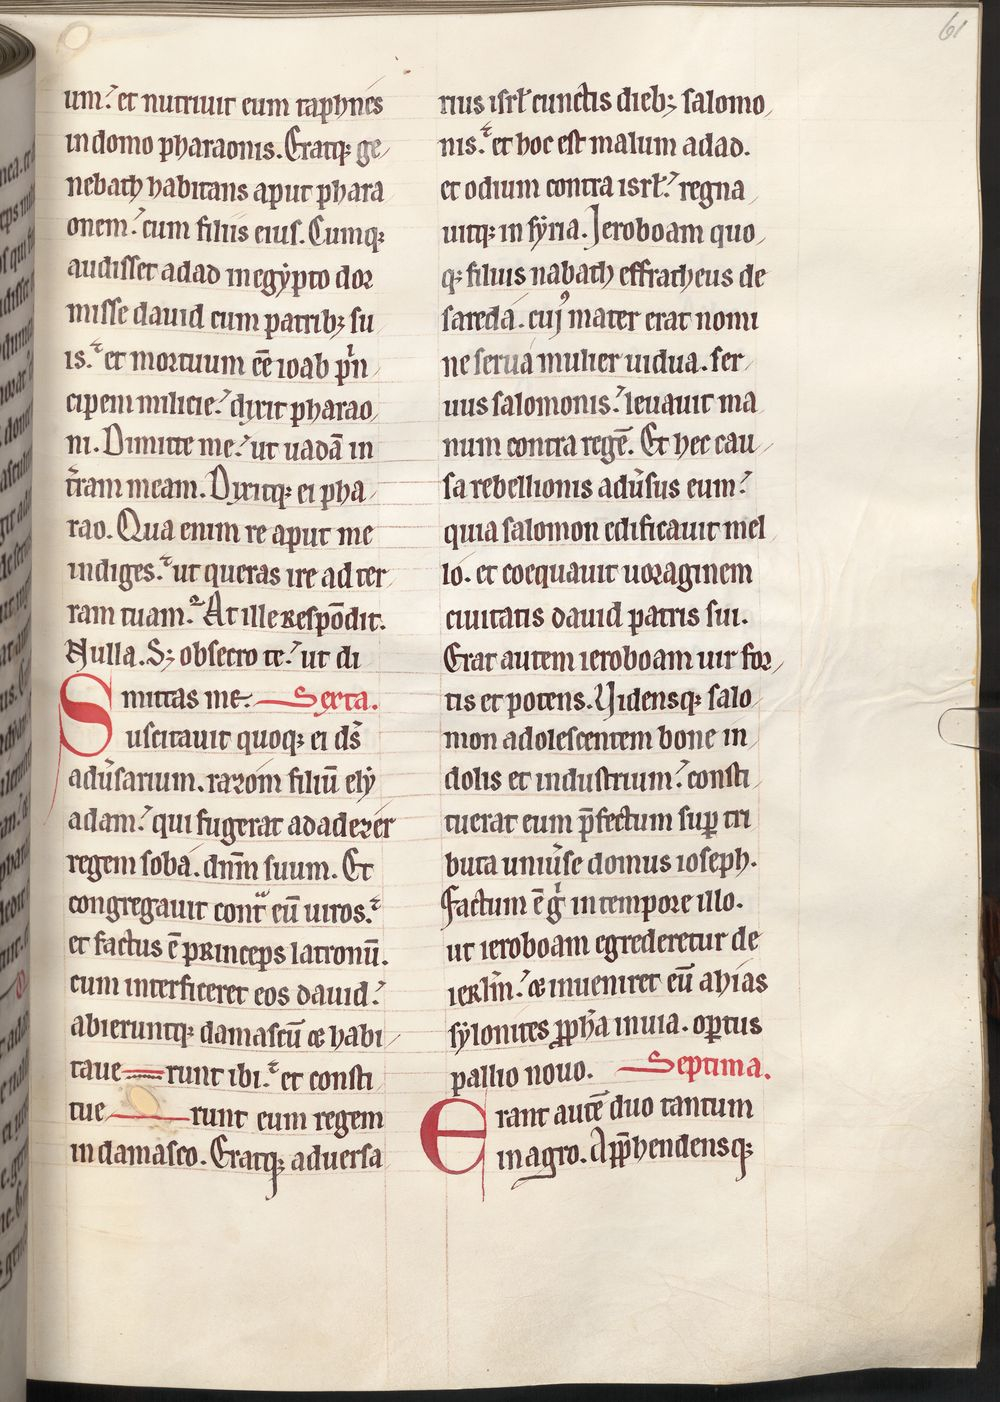 61
um. et nutriuit eum taphnes
in domo pharaonis. Eratq; ge
nebath habitans aput phara
onem. cum filiis eius. Cumq;
audisset adad in egẏpto dor
misse dauid cum patrib; su
is. et mortuum ēē ioab pͥn
cipem milicie. dixit pharao
ni. Dimitte me. ut uadā in
t̄ram meam. Dixitq; ei pha
rao. Qua enim re aput me
indiges. ut queras ire ad ter
ram tuam. At ille respōdit.
Nulla. S; obsecro te. ut di
mittas me. Sexta.
Suscitauit quoq; ei ds̄
adūsarium. razom filiū elẏ
adam. qui fugerat adadezer
regem soba. dnm̄ suum. Et
congregauit contᷓ eū uiros.
et factus ē princeps latronū.
cum interficeret eos dauid.
abieruntq; damascū & habi
taue runt ibi. et consti
tue runt eum regem
in damasco. Eratq; aduersa
rius isrl̄ cunctis dieb; salomo
nis. et hoc est malum adad.
et odium contra isrl̄. regna
uitq; in sẏria. Jeroboam quo
q; filius nabath effratheus de
sareda. cuj᷒ mater erat nomi
ne serua mulier uidua. ser
uus salomonis. leuauit ma
num contra regē. Et hec cau
sa rebellionis adūsus eum.
quia salomon edificauit mel
lo. et coequauit uoraginem
ciuitatis dauid patris sui.
Erat autem ieroboam uir for
tis et potens. Vidensq; salo
mon adolescentem bone in
dolis et industrium. consti
tuerat eum p̄fectum suꝑ tri
buta uniūse domus ioseph.
Factum ē gͥ in tempore illo.
ut ieroboam egrederetur de
ierlm̄. & inueniret eū ahias
sẏlonites ꝓph̄a in uia. optus
pallio nouo. Septima.
Erant autē duo tantum
in agro. App̄hendensq;